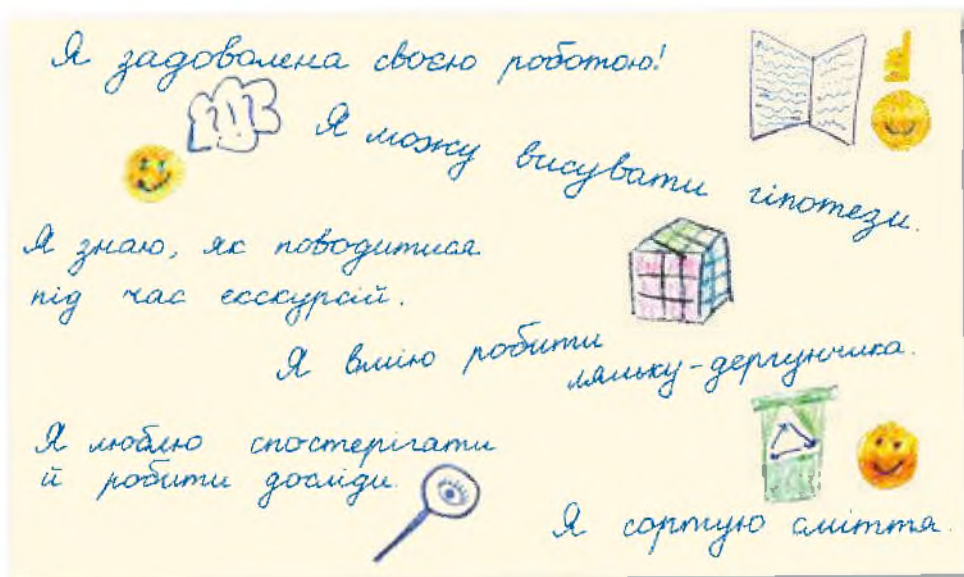 Я задоволена своєю роботою!
Я можу висувати гіпотези.
Я знаю, як поводитися
під час екскурсій.
Я вмію робити ляльку-дергунчика.
Я люблю спостерігати
й робити досліди.
Я сортую сміття.